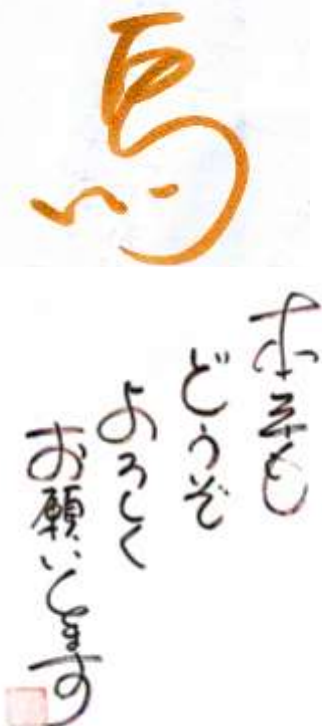 馬
本年も
どうぞ
よろしく
お願いします